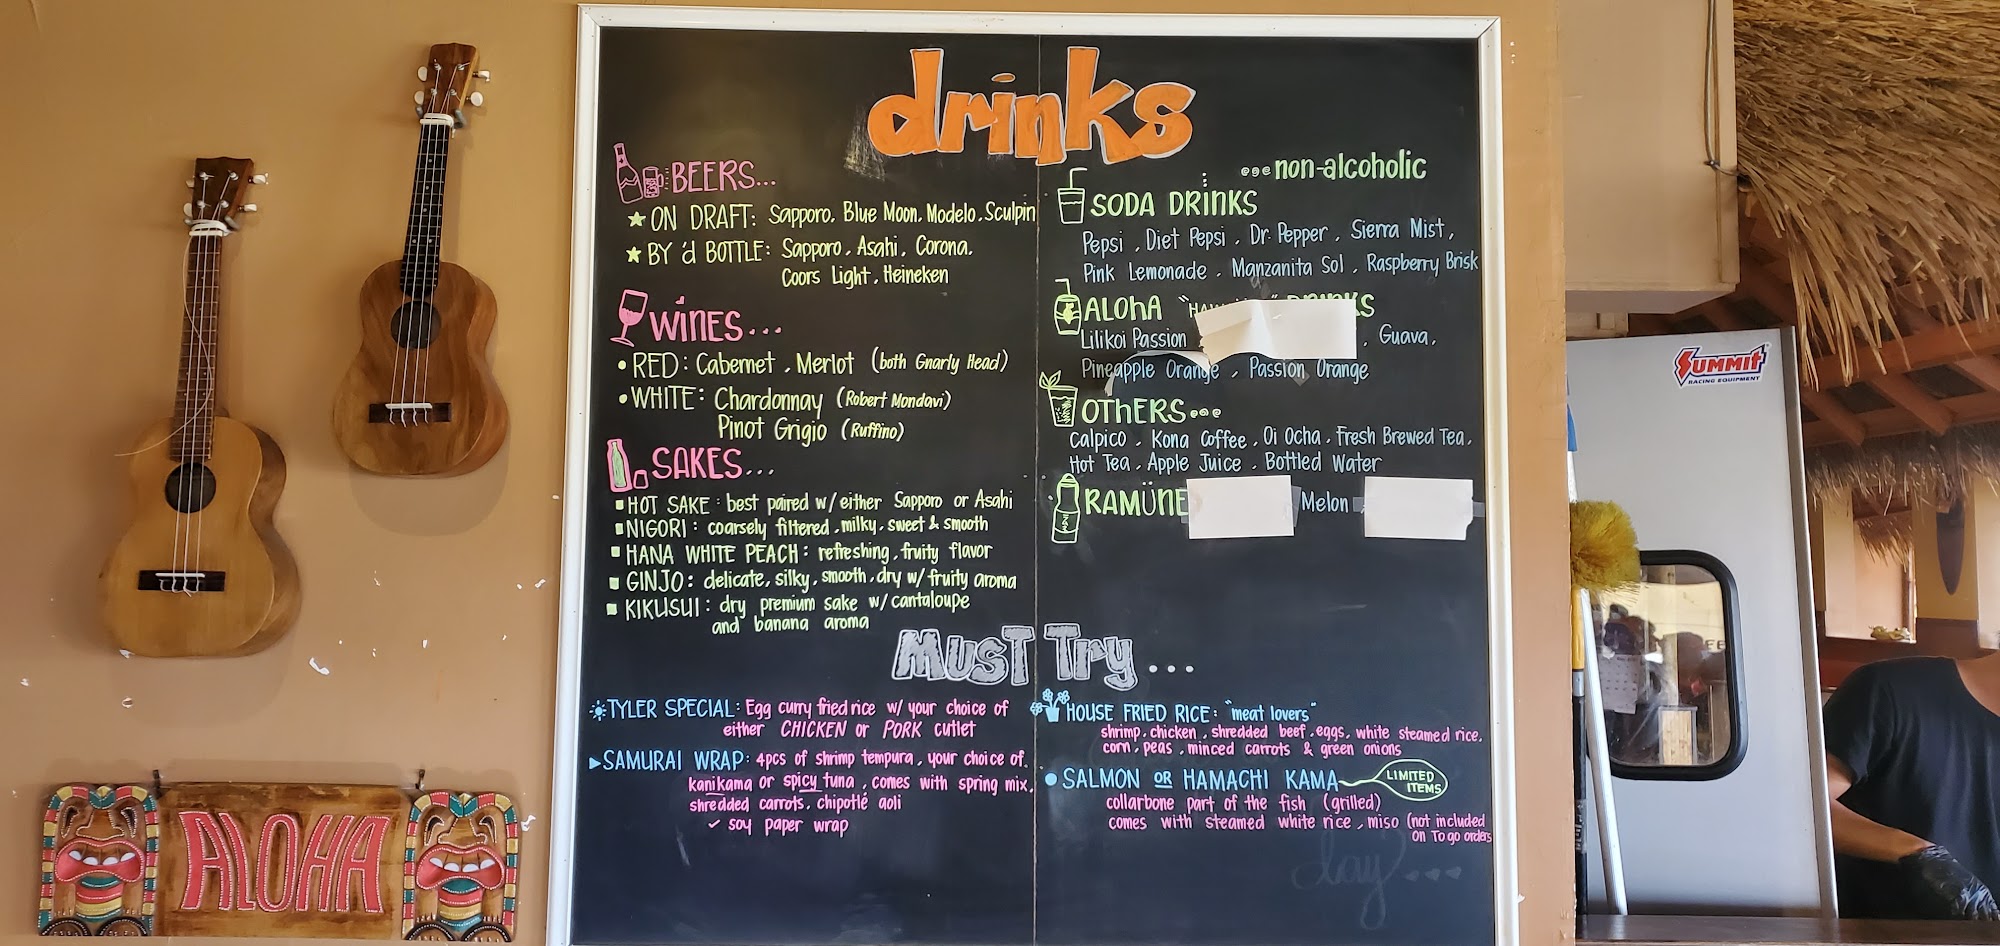 drinks
BEERS...
ON DRAFT: Sapporo, Blue Moon, Modelo, Sculpin
BY 'd BOTTLE: Sapporo, Asahi, Corona,
Coors Light, Heineken
WINES...
RED: Cabernet, Merlot (both Gnarly Head)
WHITE: Chardonnay (Robert Mondavi)
Pinot Grigio (Ruffino)
SAKES...
HOT SAKE: best paired w/ either Sapporo or Asahi
NIGORI: coarsely filtered, milky, sweet & smooth
HANA WHITE PEACH: refreshing, fruity flavor
GINJO: delicate, silky, smooth, dry w/ fruity aroma
KIKUSUI: dry premium sake w/ cantaloupe
and banana aroma
...non-alcoholic
SODA DRINKS
Pepsi, Diet Pepsi, Dr. Pepper, Sierra Mist,
Pink Lemonade, Manzanita Sol, Raspberry Brisk
ALOHA
Lilikoi Passion , Guava,
Pineapple Orange, Passion Orange
OTHERS...
Calpico, Kona Coffee, Oi Ocha, Fresh Brewed Tea,
Hot Tea, Apple Juice, Bottled Water
RAMÜNE Melon
MUST TRY...
TYLER SPECIAL: Egg curry fried rice w/ your choice of
either CHICKEN or PORK cutlet
SAMURAI WRAP: 4pcs of shrimp tempura, your choice of
kanikama or spicy tuna, comes with spring mix,
shredded carrots, chipotlé aoli
✓ soy paper wrap
HOUSE FRIED RICE: "meat lovers"
shrimp, chicken, shredded beef, eggs, white steamed rice,
corn, peas, minced carrots & green onions
SALMON OR HAMACHI KAMA LIMITED ITEMS
collarbone part of the fish (grilled)
comes with steamed white rice, miso (not included
on To go orders
day...
ALOHA
SUMMIT
RACING EQUIPMENT